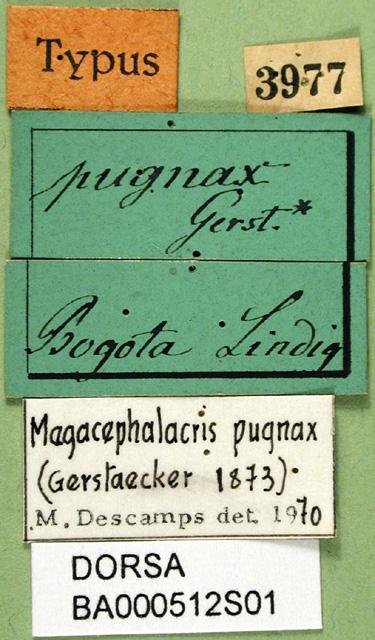 Typus
3977
pugnax
Gerst.*
Bogota Lindig
Magacephalacris pugnax
(Gerstaecker 1873).
M. Descamps det. 1970
DORSA
BA000512S01